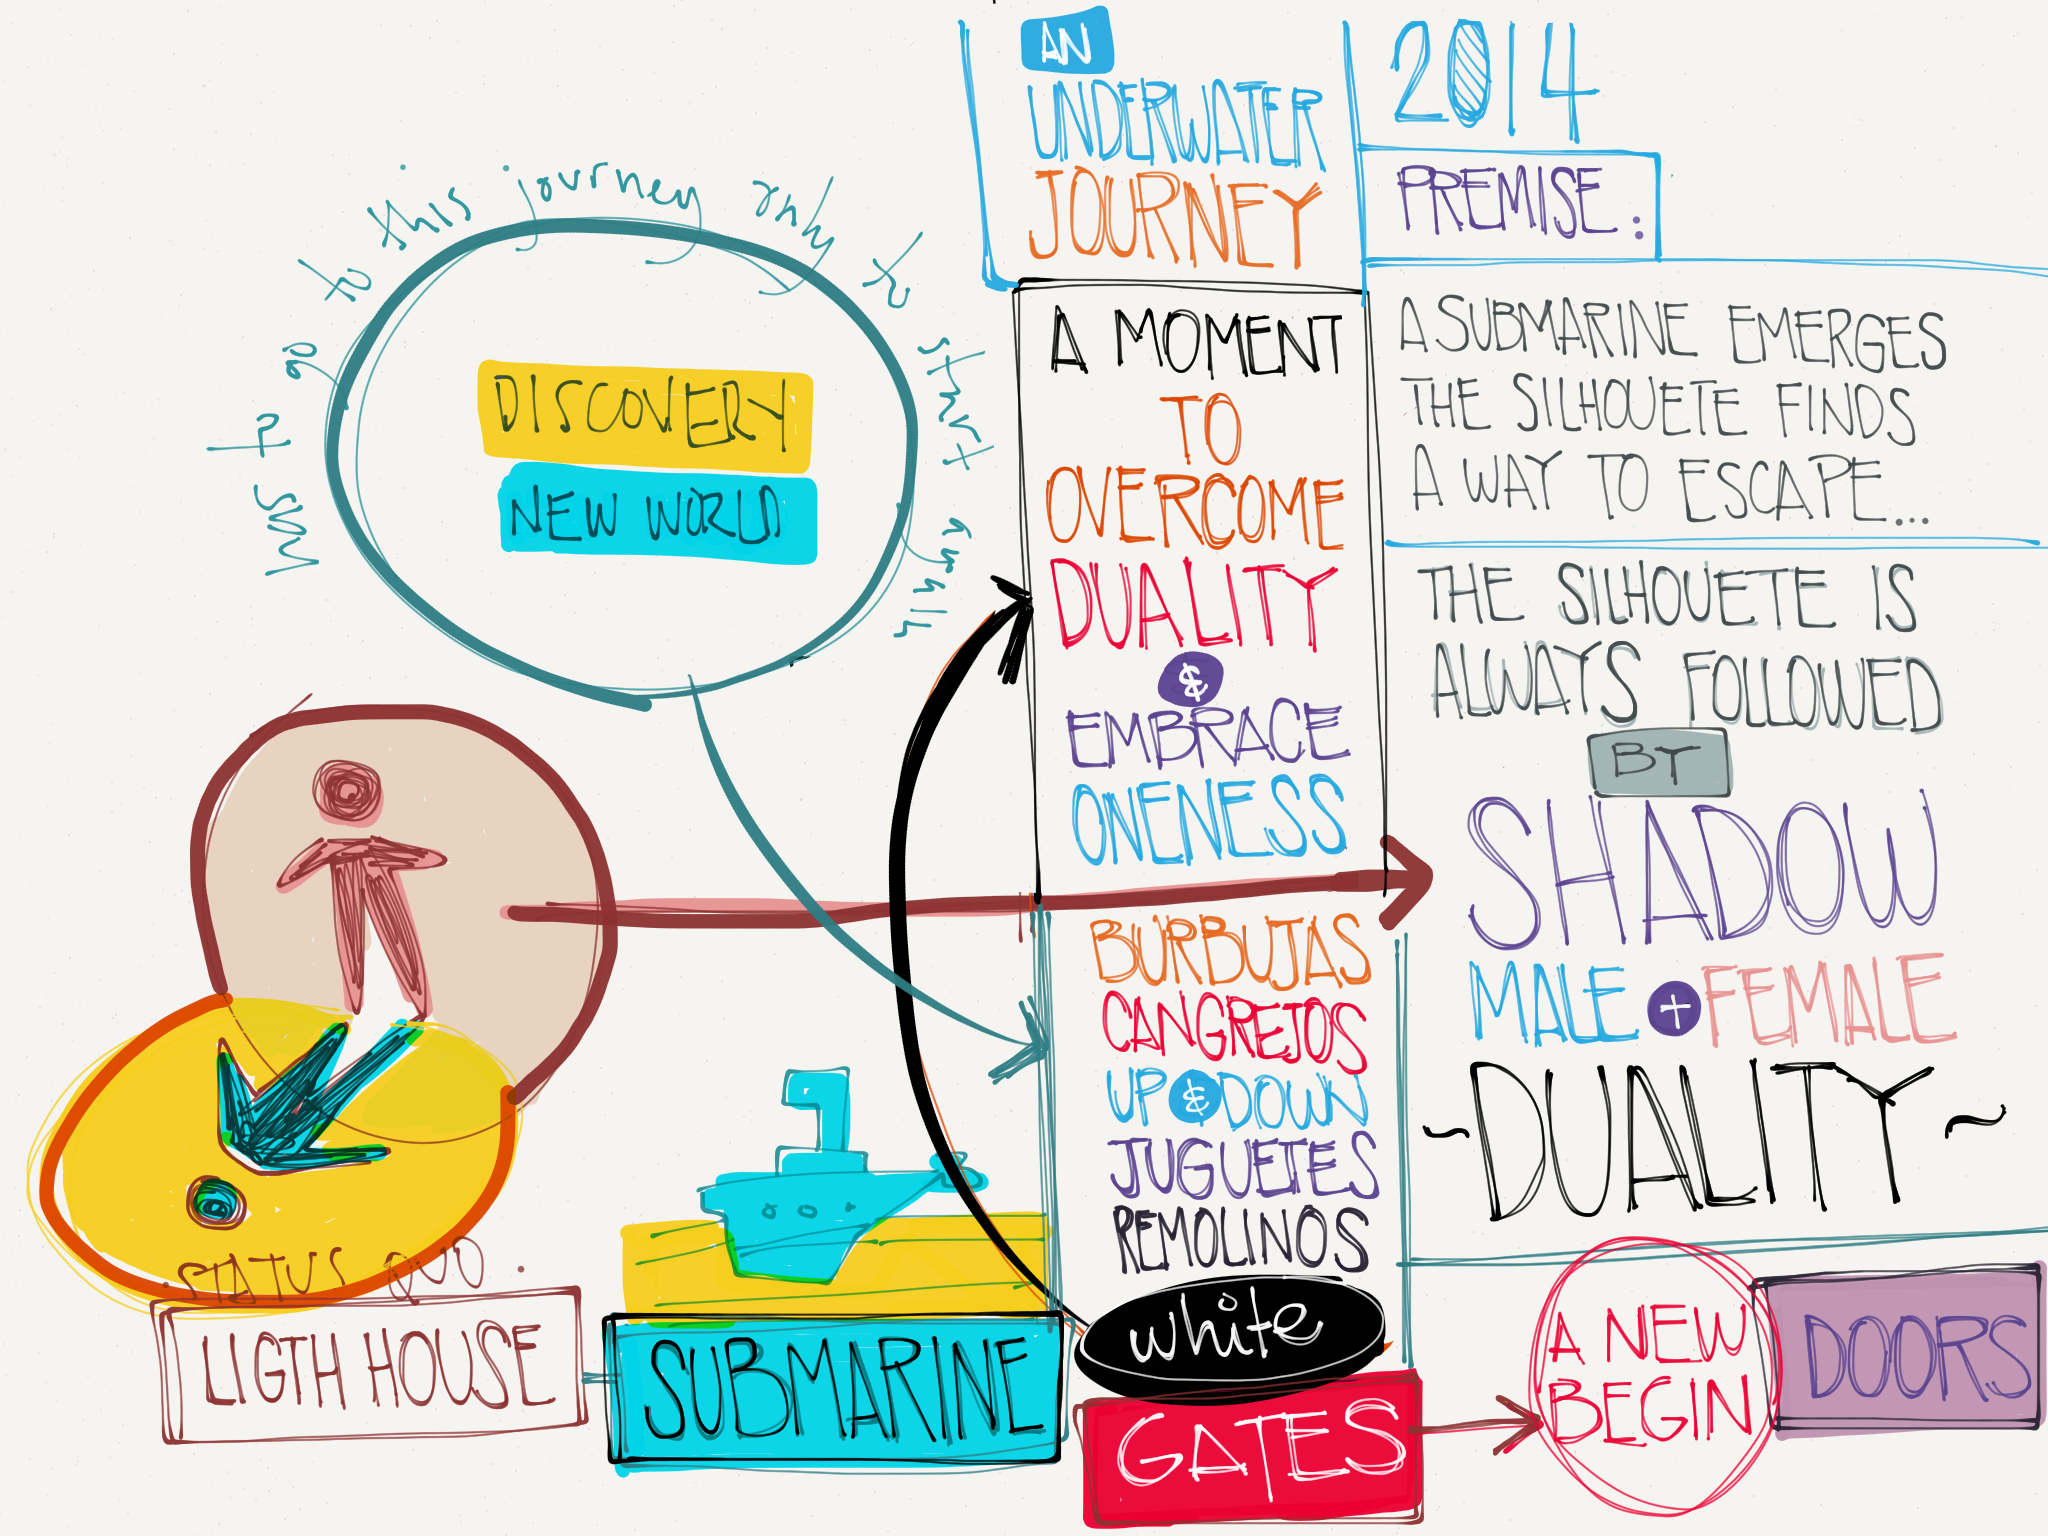 AN
UNDERWATER
JOURNEY
2014
PREMISE:
A SUBMARINE EMERGES
THE SILHOUETE FINDS
A WAY TO ESCAPE...
THE SILHOUETE IS
ALWAYS FOLLOWED
BY
SHADOW
MALE + FEMALE
~DUALITY~
A MOMENT
TO
OVERCOME
DUALITY
&
EMBRACE
ONENESS
BURBUJAS
CANGREJOS
UP & DOWN
JUGUETES
REMOLINOS
white
GATES
A NEW
BEGIN
DOORS
must go to this journey only to start again
DISCOVERY
NEW WORLD
.STATUS QUO.
LIGTH HOUSE
SUBMARINE